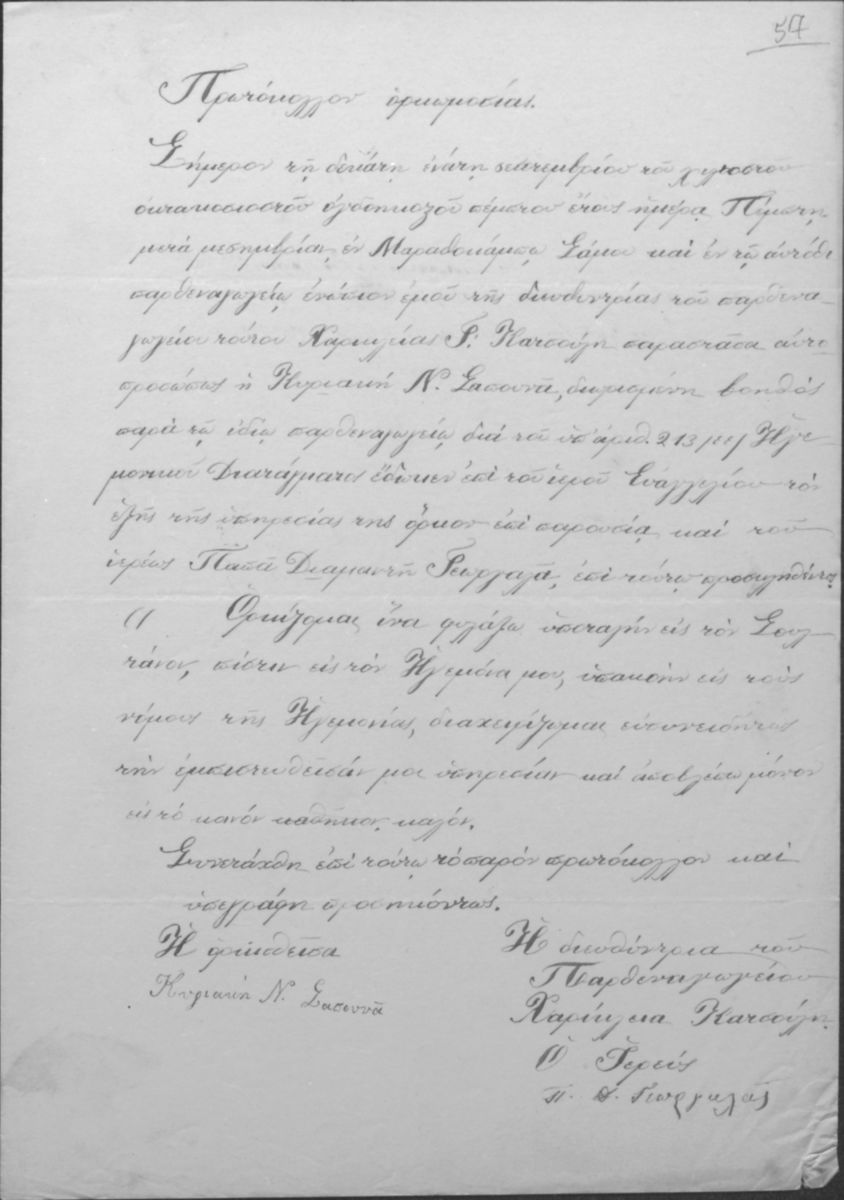 57
Πρωτόκολλον ὁρκωμοσίας.
Σήμερον τῇ δεκάτῃ ἐνάτῃ Σεπτεμβρίου τοῦ χιλιοστοῦ
ὀκτακοσιοστοῦ ὀγδοηκοστοῦ πέμπτου ἔτους ἡμέρᾳ Πέμπτῃ
μετὰ μεσημβρίαν, ἐν Μαραθοκάμπῳ Σάμου καὶ ἐν τῷ αὐτόθι
παρθεναγωγείῳ ἐνώπιον ἐμοῦ τῆς διευθυντρίας τοῦ παρθενα-
γωγείου τούτου Χαρικλείας Γ. Κατσούλη παραστᾶσα αὐτο-
προσώπως ἡ Κυριακὴ Ν. Σαπουνᾶ, διωρισμένη βοηθὸς
παρὰ τῷ ἰδίῳ παρθεναγωγείῳ διὰ τοῦ ὑπ' ἀριθ. 213 Ἡγε-
μονικοῦ Διατάγματος ἔδωκεν ἐπὶ τοῦ ἱεροῦ Εὐαγγελίου τὸν
ἑξῆς τῆς ὑπηρεσίας της ὅρκον ἐπὶ παρουσίᾳ καὶ τοῦ
ἱερέως Παπᾶ Διαμαντῆ Γεωργαλᾶ, ἐπὶ τούτῳ προσκληθέντος
" Ὁρκίζομαι ἵνα φυλάξω ὑποταγὴν εἰς τὸν Σουλ-
τάνον, πίστιν εἰς τὸν Ἡγεμόνα μου, ὑπακοὴν εἰς τοὺς
νόμους τῆς Ἡγεμονίας, διαχειρίζωμαι εὐσυνειδήτως
τὴν ἐμπιστευθεῖσάν μοι ὑπηρεσίαν καὶ ἀποβλέπω μόνον
εἰς τὸ κοινὸν καλόν.
Συνετάχθη ἐπὶ τούτῳ τὸ παρὸν πρωτόκολλον καὶ
ὑπεγράφη προσηκόντως.
Ἡ ὁρκισθεῖσα
Κυριακὴ Ν. Σαπουνᾶ
Ἡ διευθύντρια τοῦ
Παρθεναγωγείου
Χαρίκλεια Κατσούλη
Ὁ Ἱερεὺς
Π. Δ. Γεωργαλᾶς